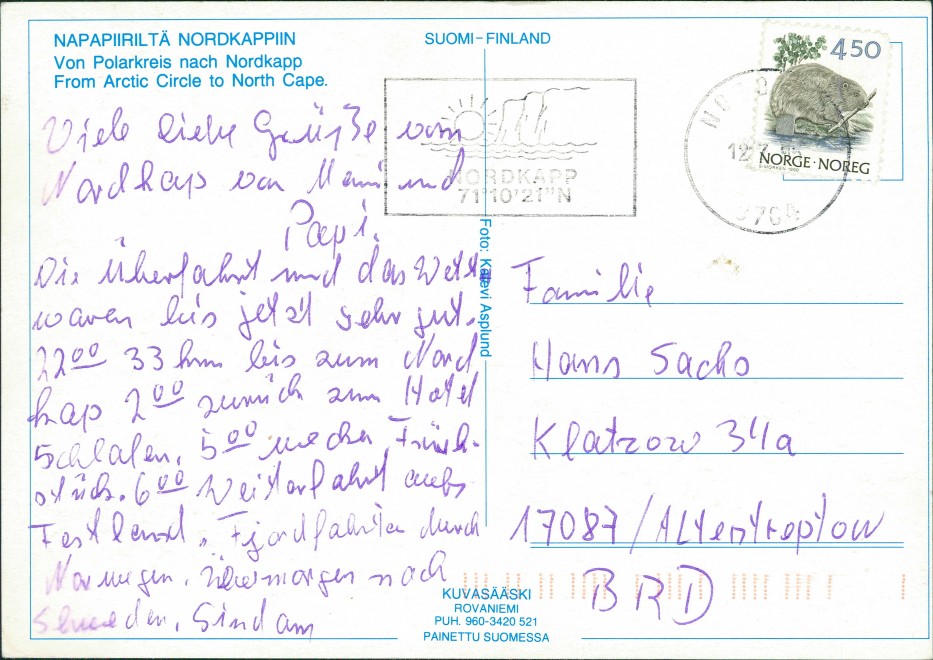 NAPAPIIRILTÄ NORDKAPPIIN
Von Polarkreis nach Nordkapp
From Arctic Circle to North Cape.
SUOMI-FINLAND
Viele liebe Grüße vom
Nordkap von Mami und
Papi.
Die Überfahrt und das Wett
waren bis jetzt sehr gut.
22⁰⁰ 33 km bis zum Nord
kap 2⁰⁰ zurück zum Hotel
schlafen, 5⁰⁰ wecken, Früh-
stück. 6⁰⁰ Weiterfahrt aufs
Festland. Fjordfahrten durch
Norwegen, übermorgen nach
Schweden. Sind am
NORDKAPP
71°10'21"N
450
NORGE·NOREG
12.7
9764
Foto: Kalevi Asplund
Familie
Hans Sachs
Klatzow 34a
17087/Altentreptow
BRD
KUVASÄÄSKI
ROVANIEMI
PUH. 960-3420 521
PAINETTU SUOMESSA